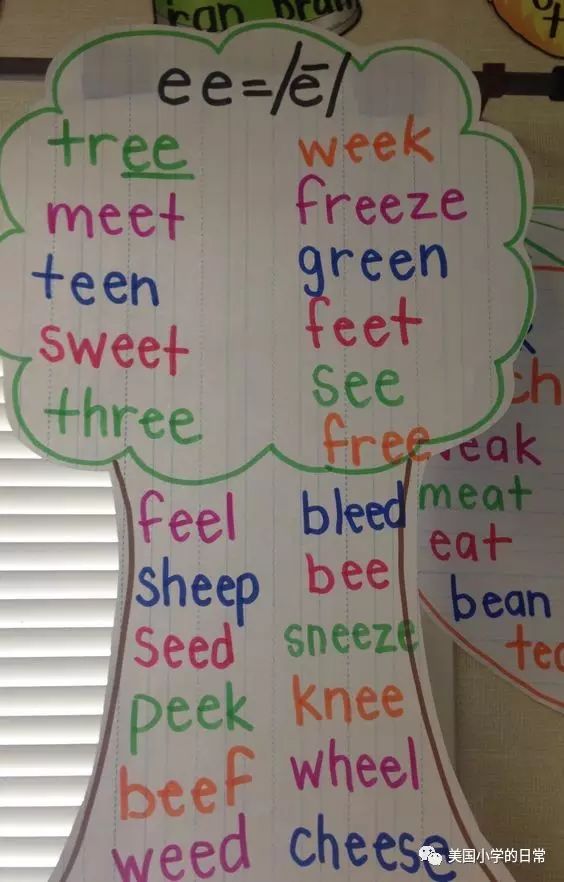 rain brain
ee=/ē/
tree week
meet freeze
teen green
sweet feet
three see
free
feel bleed
sheep bee
seed sneeze
peek knee
beef wheel
weed cheese
meat
eat
bean
美国小学的日常